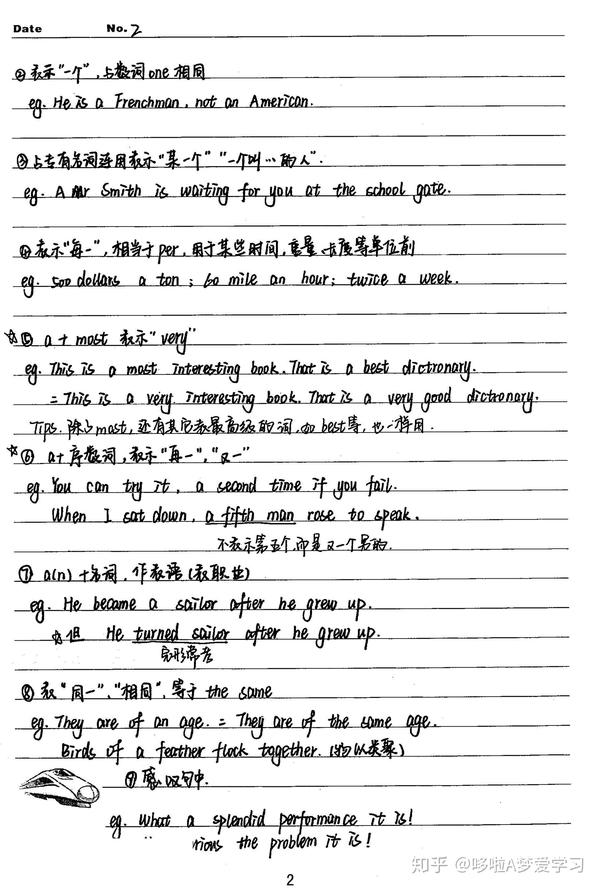 Date No. 2
②表示"一个",与数词one相同
eg. He is a Frenchman, not an American.
③与专有名词连用表示"某一个" "一个叫…的人".
eg. A Mr Smith is waiting for you at the school gate.
④表示"每一",相当于per,用于某些时间,重量,长度等单位前
eg. 500 dollars a ton; 60 mile an hour; twice a week.
☆⑤ a + most 表示"very"
eg. This is a most interesting book. That is a best dictronary.
= This is a very interesting book. That is a very good dictronary.
Tips. 除了most,还有其它表最高级的词,如best等,也一样用.
☆⑥ a+序数词,表示"再一","又一"
eg. You can try it, a second time if you fail.
When I sat down, a fifth man rose to speak.
不表示第五个,而是又一个男的.
⑦ a(n) +名词,作表语(表职业)
eg. He became a sailor after he grew up.
☆但 He turned sailor after he grew up.
完形常考
⑧表"同一","相同",等于the same
eg. They are of an age. = They are of the same age.
Birds of a feather flock together. (物以类聚)
⑨感叹句中.
eg. What a splendid performance it is!
the problem it is!
2
知乎 @哆啦A梦爱学习